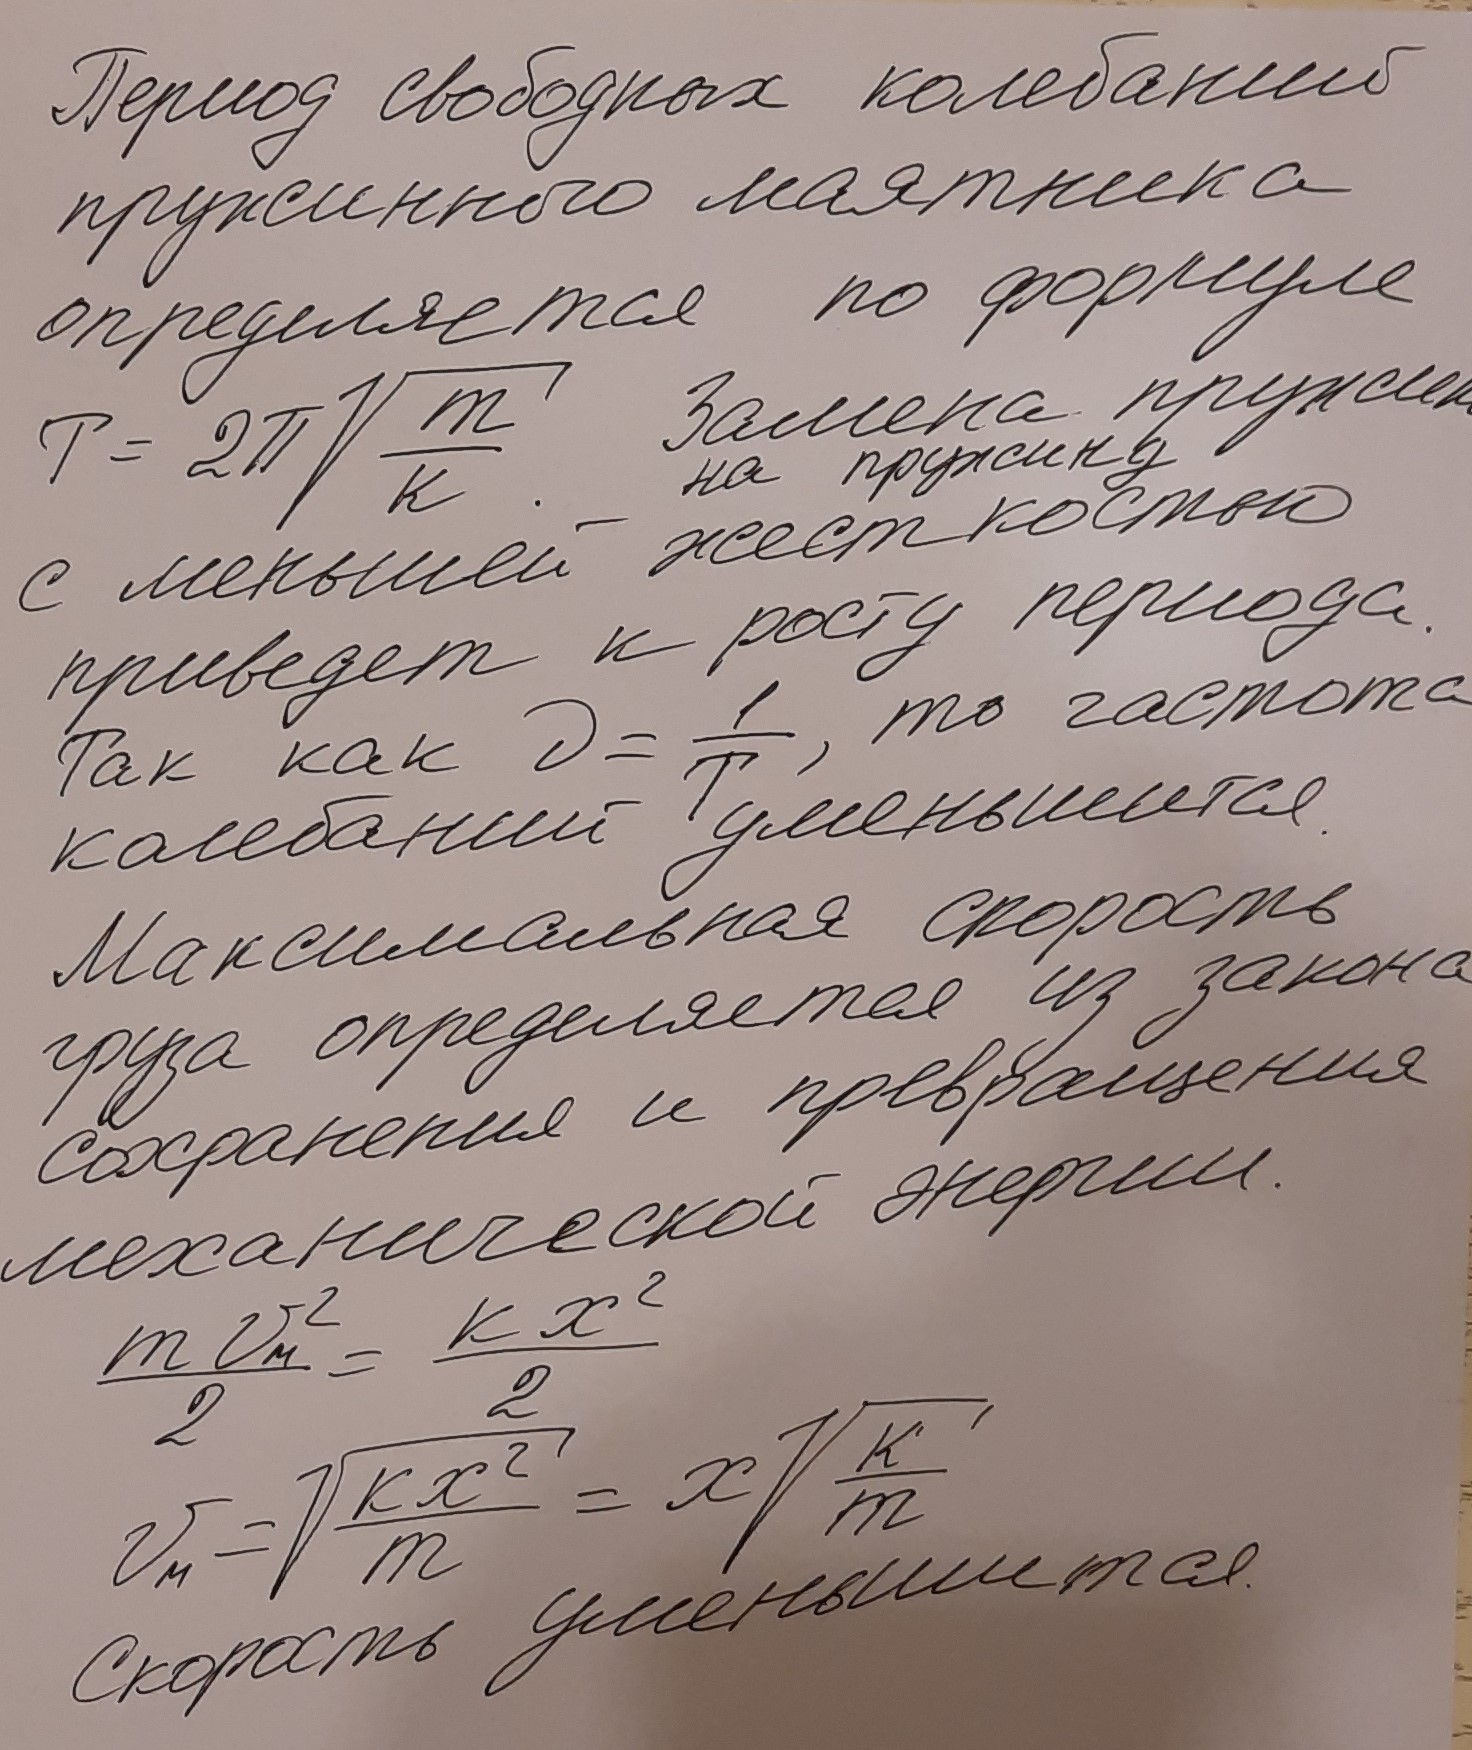 Период свободных колебаний
пружинного маятника
определяется по формуле
T = 2π√(m/k). Замена пружины
на пружину
с меньшей жесткостью
приведет к росту периода.
Так как ν = 1/T, то частота
колебаний уменьшится.
Максимальная скорость
груза определяется из закона
сохранения и превращения
механической энергии.
mv²ₘ/2 = kx²/2
vₘ = √(kx²/m) = x√(k/m)
Скорость уменьшится.